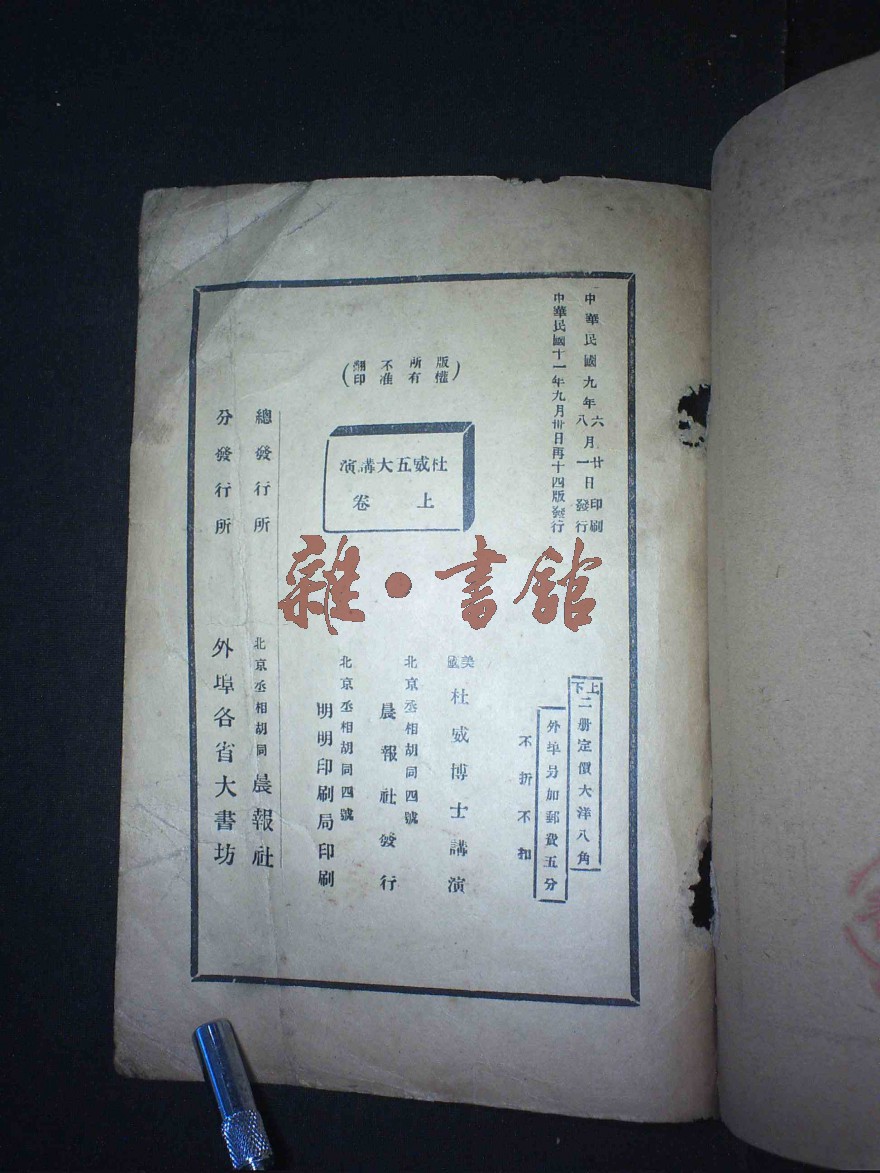 中華民國九年六月廿日印刷
八一發行
中華民國十一年九月卅日再十四版發行
上下二册定價大洋八角
外埠另加郵費五分
不折不扣
(版權所有不准翻印)
杜威五大講演
上卷
美國杜威博士講演
北京丞相胡同四號
晨報社發行
北京丞相胡同四號
明明印刷局印刷
總發行所 北京丞相胡同晨報社
分發行所 外埠各省大書坊
雜·書館